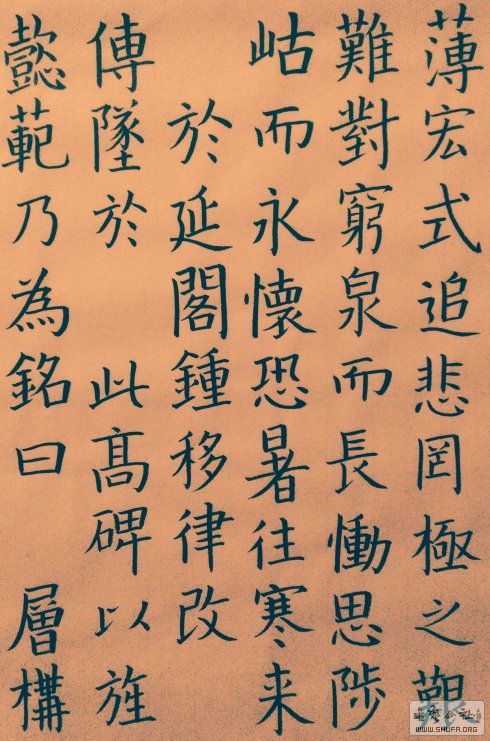 薄宏式追悲罔極之
難對窮泉而長慟思陟
岵而永懷恐暑往寒来
於延閣鍾移律改
傳墜於 此高碑以旌
懿範乃為銘曰 層構
WWW.SHUFA.ORG